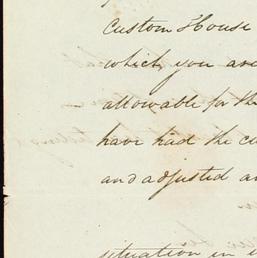 Custom House
which you are
allowable for the
have had the cu
and adjusted an
situation in